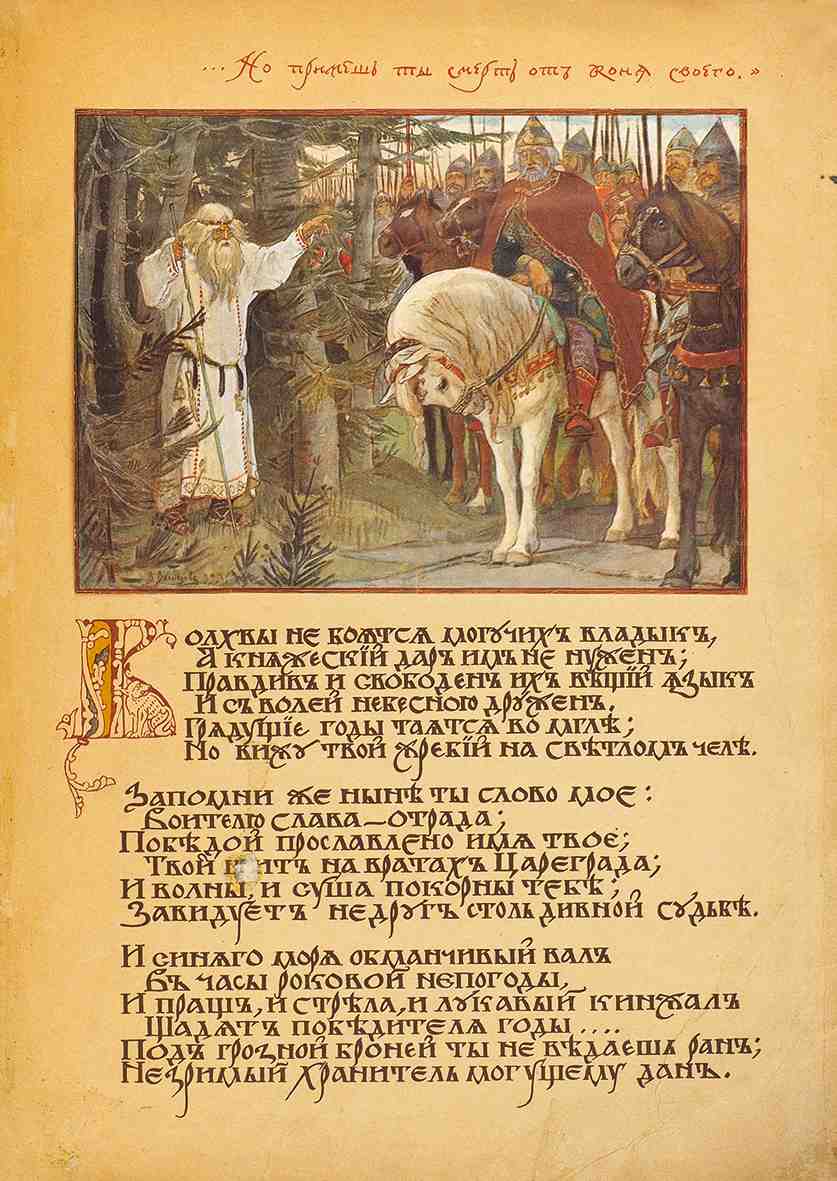 ...Но примешь ты смерть отъ коня своего.»
Волхвы не боятся могучихъ владыкъ,
А княжескій даръ имъ не нуженъ;
Правдивъ и свободенъ ихъ вѣщій языкъ
И съ волей небесною друженъ.
Грядущіе годы таятся во мглѣ;
Но вижу твой жребій на свѣтломъ челѣ.
Запомни же нынѣ ты слово мое:
Воителю слава—отрада;
Побѣдой прославлено имя твое;
Твой щитъ на вратахъ Цареграда;
И волны, и суша покорны тебѣ;
Завидуетъ недругъ столь дивной судьбѣ.
И синяго моря обманчивый валъ
Въ часы роковой непогоды,
И пращъ, и стрѣла, и лукавый кинжалъ
Щадятъ побѣдителя годы ....
Подъ грозной броней ты не вѣдаешь ранъ;
Незримый хранитель могущему данъ.